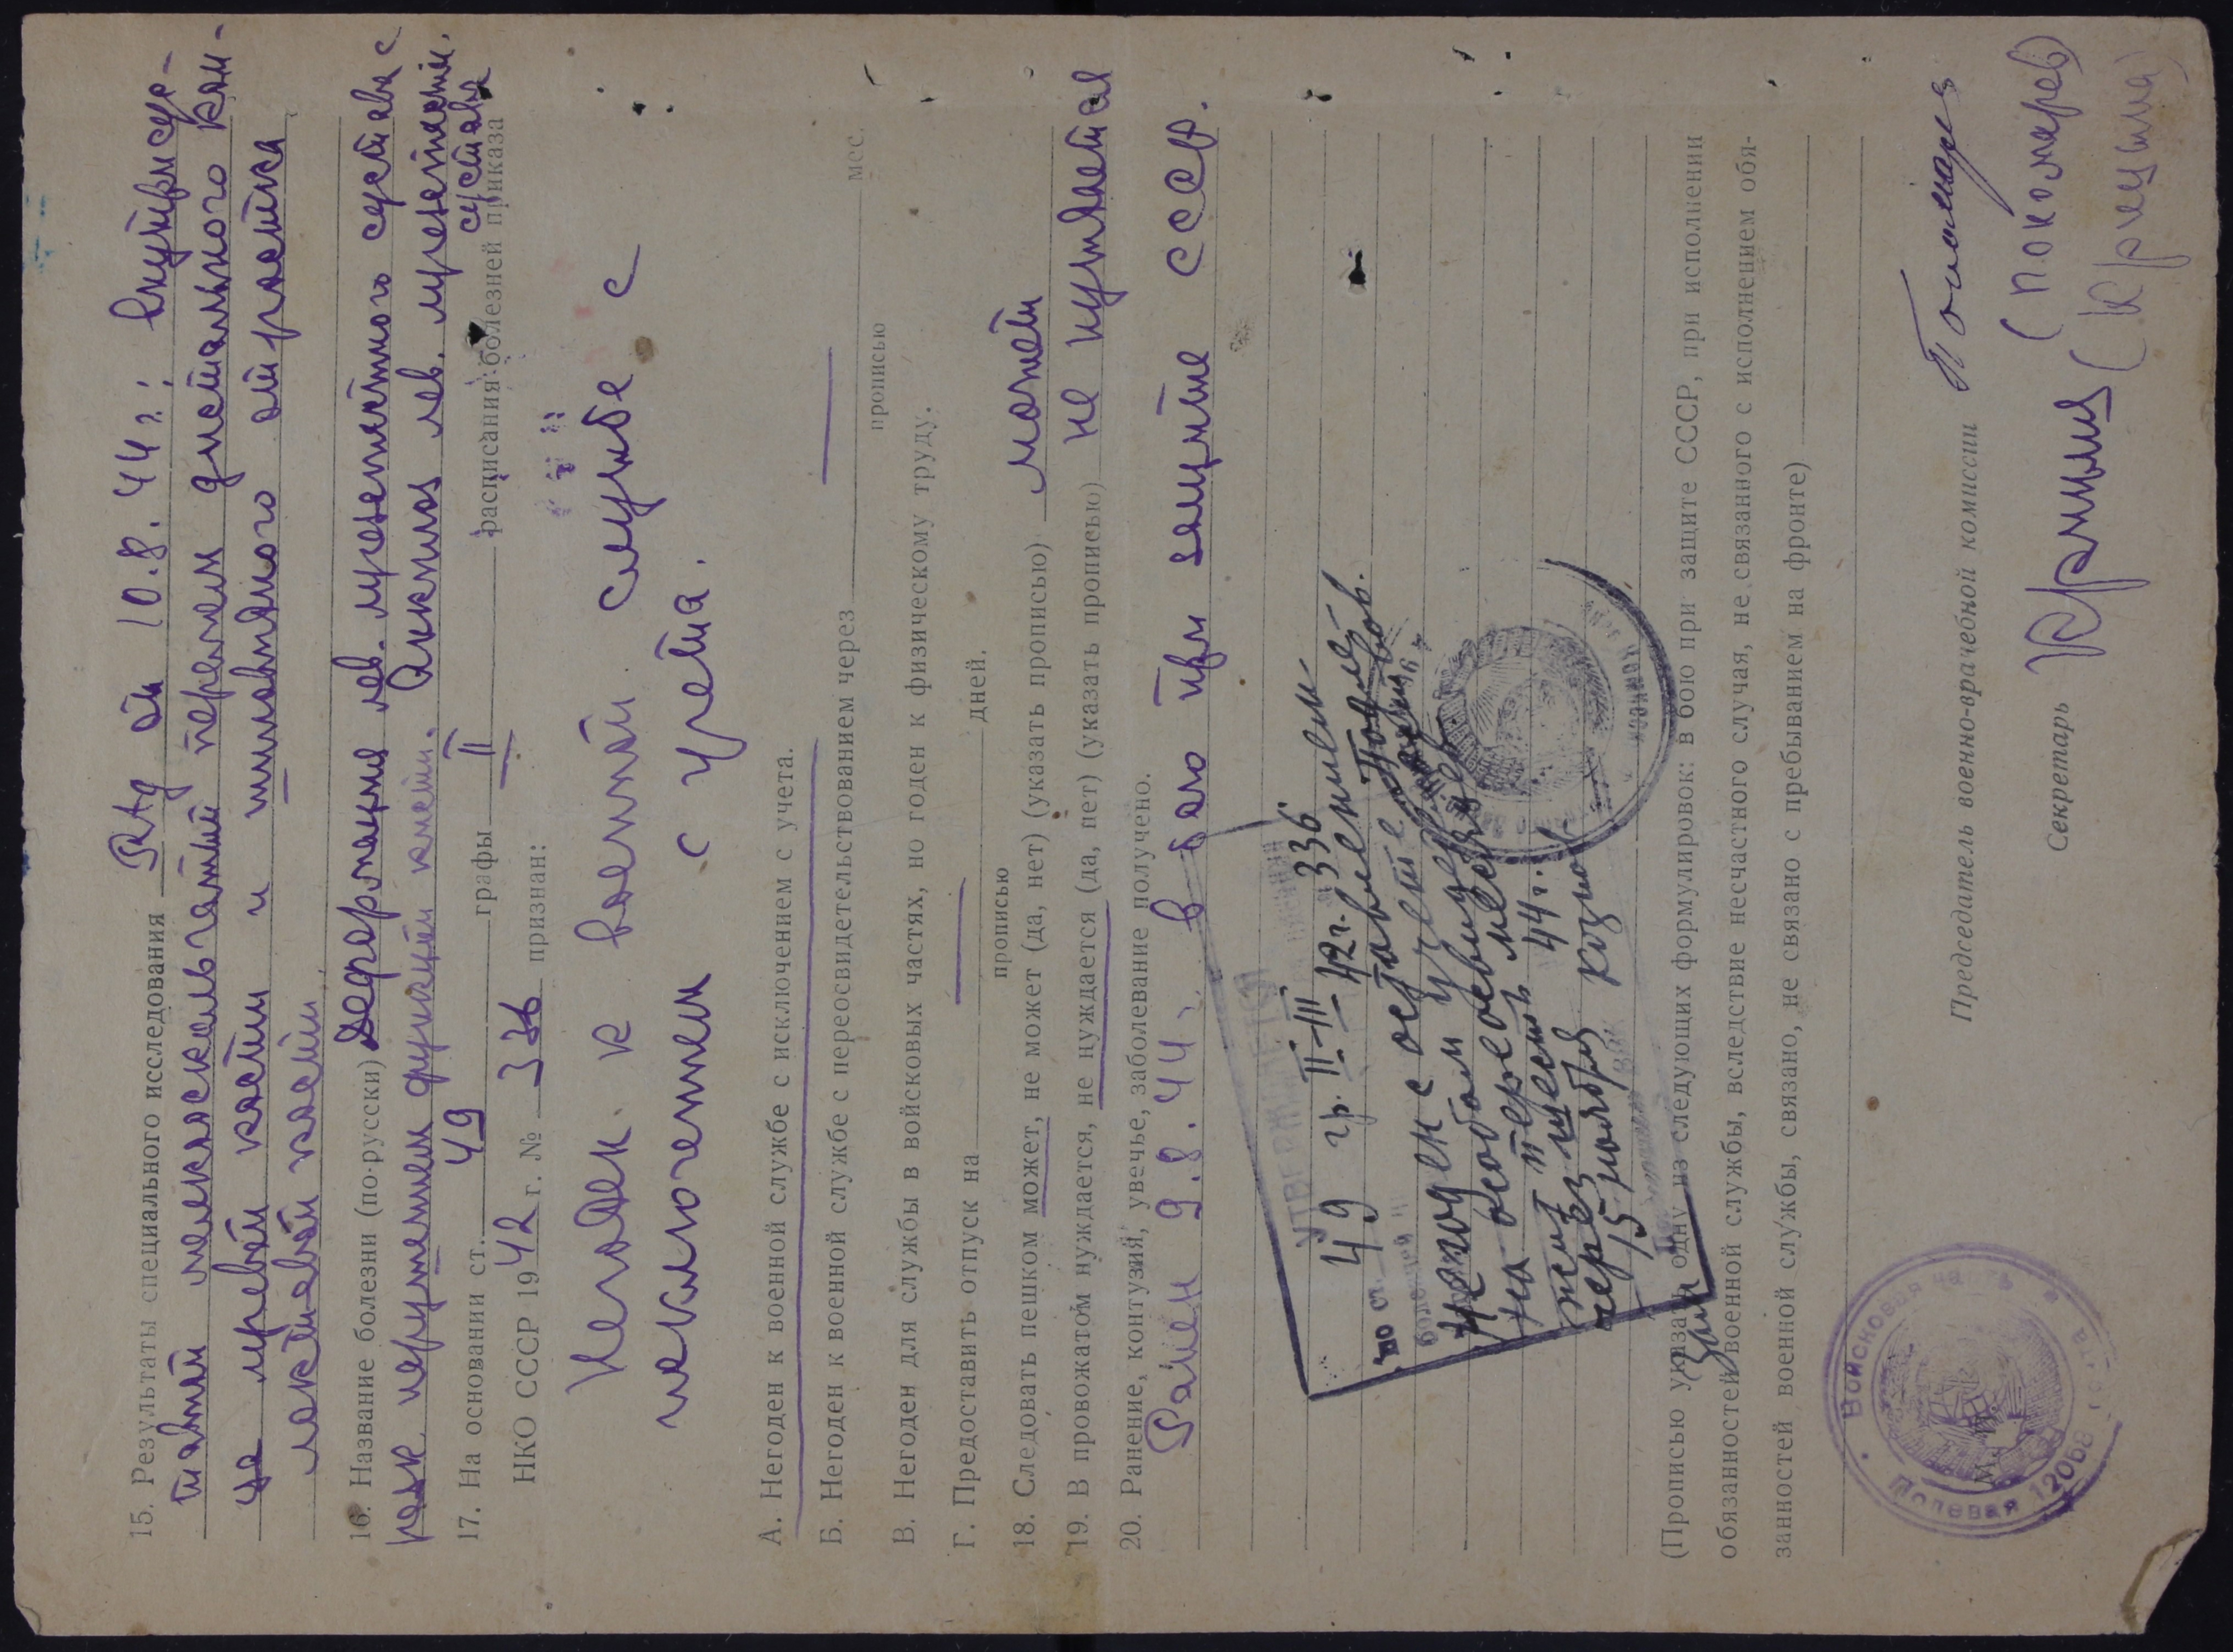 15. Результаты специального исследования Rtg от 10.8.44 г.; внутрисус-
тавной мелкооскольчатый перелом дистального кон-
ца левой кости и шиловидного отростка
локтевой кости
16. Название болезни (по-русски) Деформация лев. лучезапястного сустава с
резк. нарушением функции кисти. Анкилоз лев. лучезапястн.
сустава
17. На основании ст. 49 графы II расписания болезней приказа
НКО СССР 1942 г. № 336 признан:
Негоден к военной службе с
исключением с учета.
А. Негоден к военной службе с исключением с учета.
Б. Негоден к военной службе с переосвидетельствованием через мес.
прописью
В. Негоден для службы в войсковых частях, но годен к физическому труду.
Г. Предоставить отпуск на дней.
прописью
18. Следовать пешком может, не может (да, нет) (указать прописью) может
19. В провожатом нуждается, не нуждается (да, нет) (указать прописью) не нуждается
20. Ранение, контузия, увечье, заболевание получено.
Ранен 9.8.44 г. в бою при защите СССР.
УТВЕРЖДАЕТСЯ
по ст. 49 гр. II-III 42 г. 336
болезней
Негоден с оставлением
на особом учете
переосвидет.
через шесть месяцев
15 ноября 44 г.
(Прописью указать одну из следующих формулировок: в бою при защите СССР, при исполнении
обязанностей военной службы, вследствие несчастного случая, не связанного с исполнением обя-
занностей военной службы, связано, не связано с пребыванием на фронте)
Председатель военно-врачебной комиссии Пономарев
(Пономарев)
Секретарь Крицына (Крицына)
М. П.
Войсковая часть
Полевая почта 12058